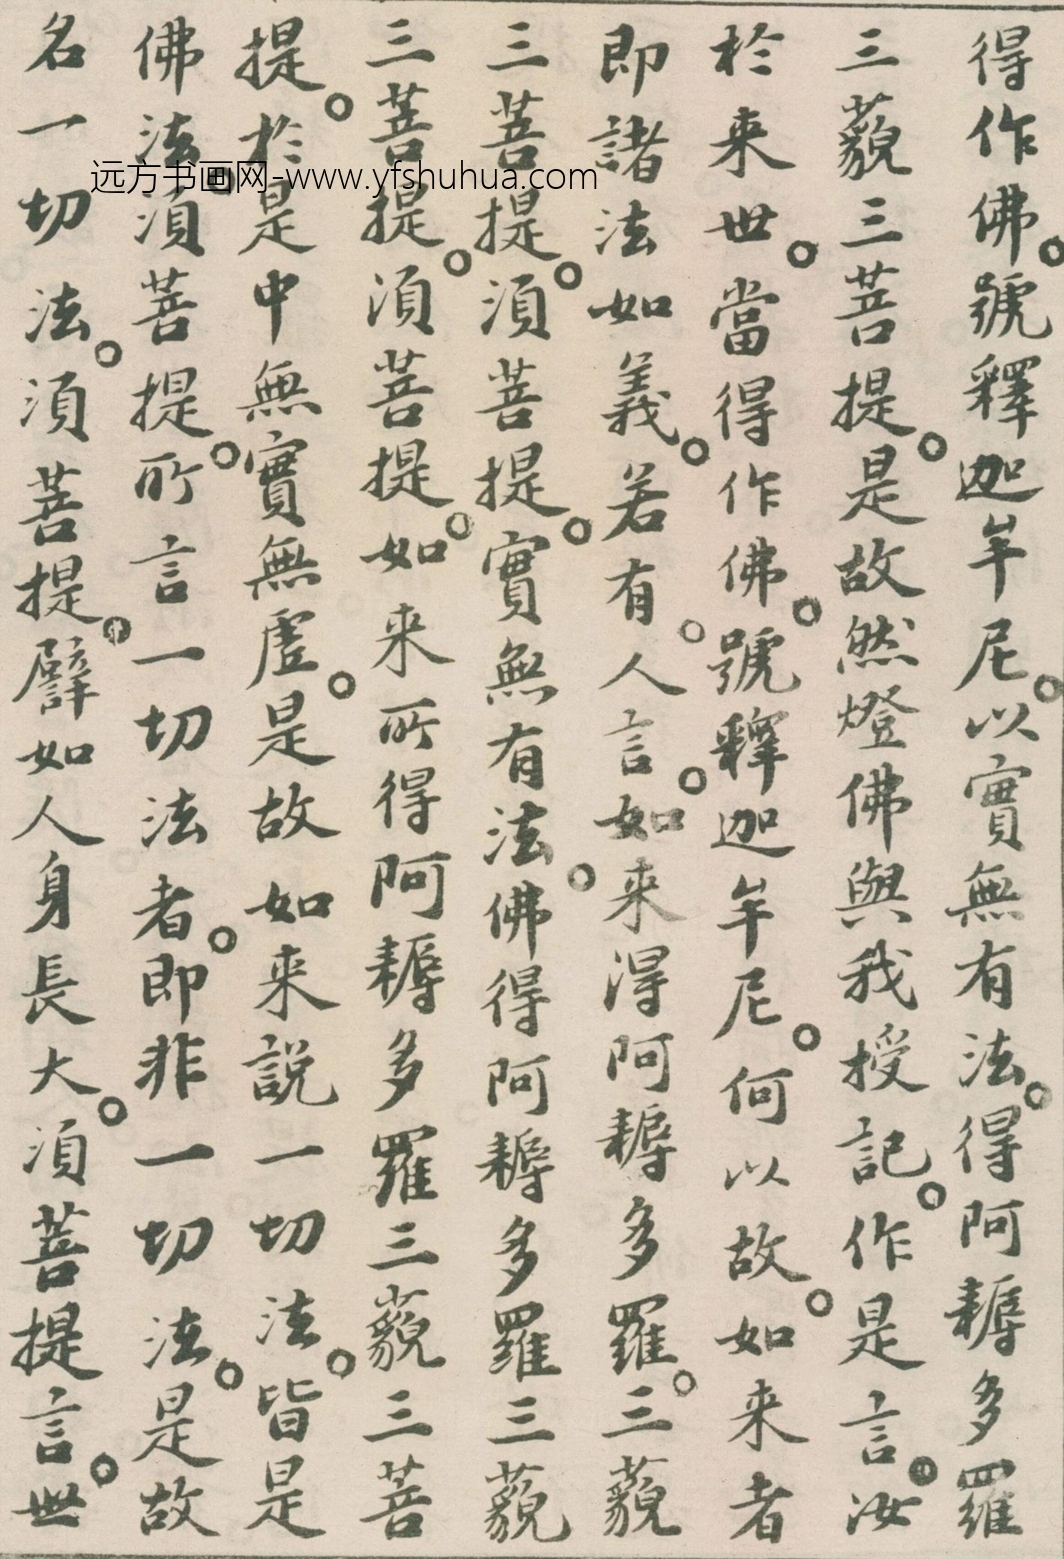 得作佛號釋迦牟尼以實無有法得阿耨多羅
三藐三菩提是故然燈佛與我授記作是言汝
於来世當得作佛號釋迦牟尼何以故如来者
即諸法如義若有人言如来得阿耨多羅三藐
三菩提須菩提實無有法佛得阿耨多羅三藐
三菩提須菩提如来所得阿耨多羅三藐三菩
提於是中無實無虛是故如来説一切法皆是
佛法須菩提所言一切法者即非一切法是故
名一切法須菩提譬如人身長大須菩提言世
远方书画网-www.yfshuhua.com